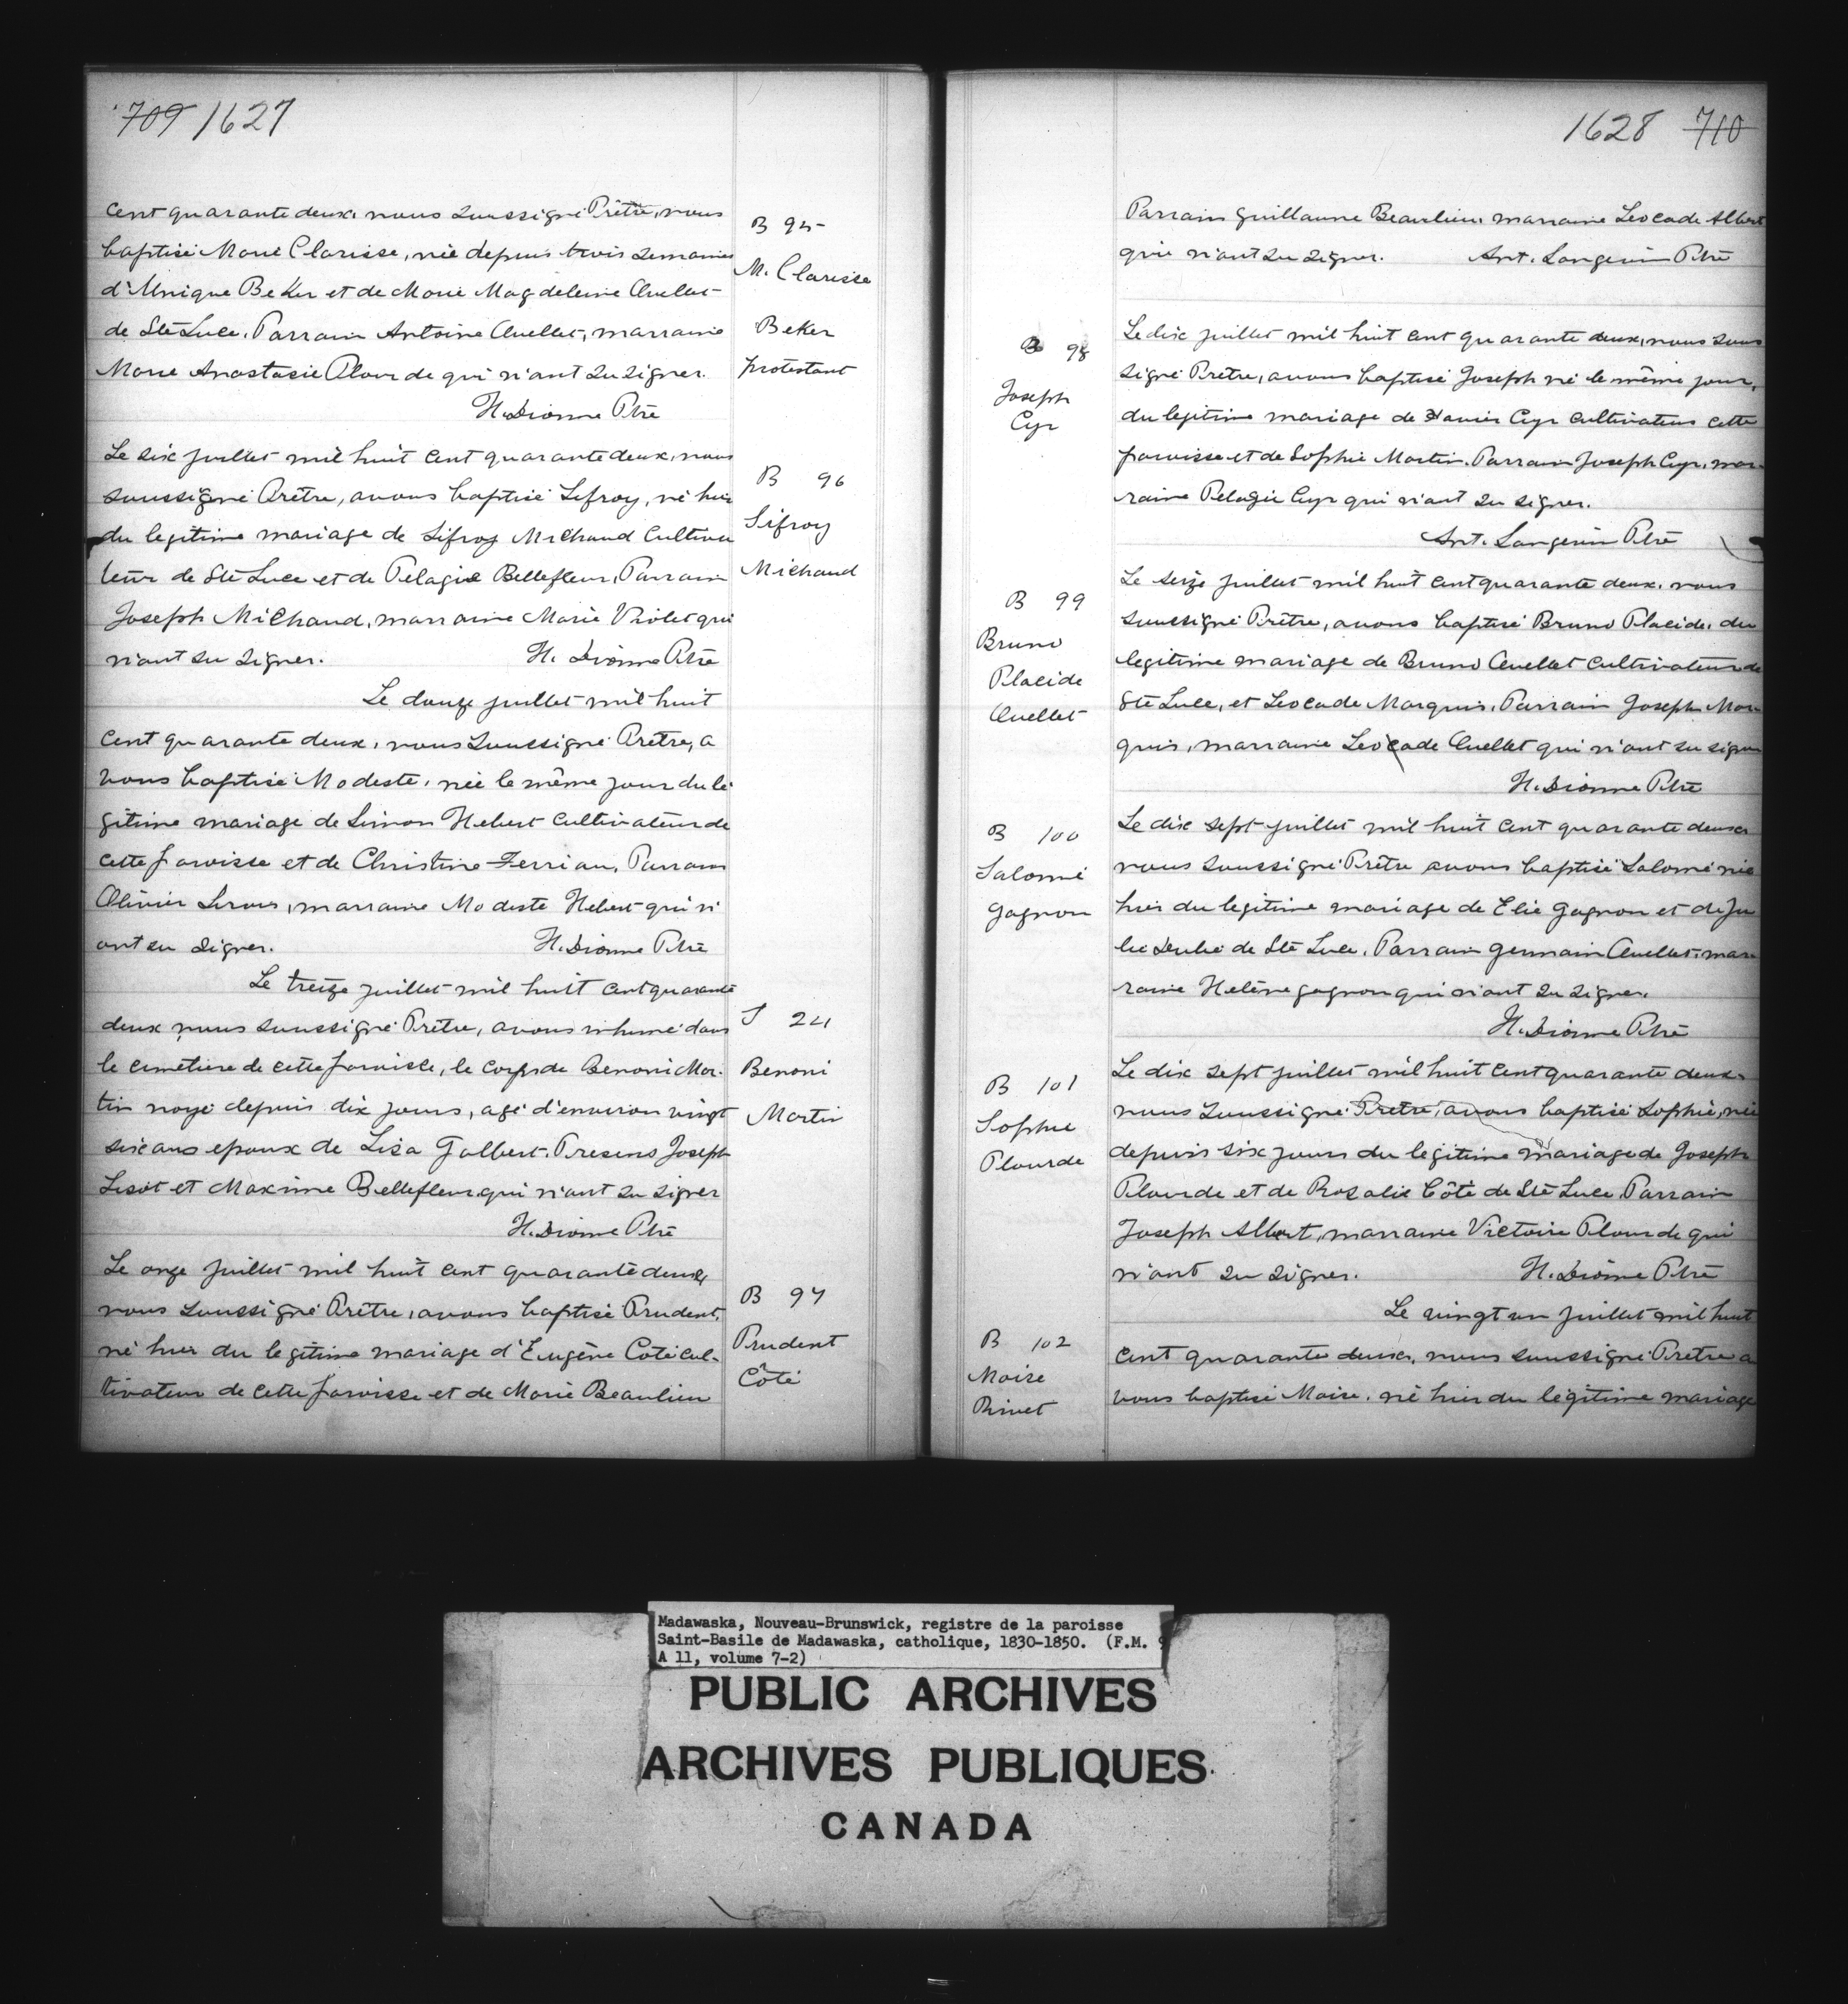 709 1627
cent quarante deux, nous soussigné Prêtre, nous
baptisé Marie Clarisse, née depuis trois semaines
d'Unique Beker et de Marie Magdeleine Ouellet
de Ste Luce. Parrain Antoine Ouellet, marraine
Marie Anastasie Plourde qui n'ont su signer.
H. Dionne Ptre
B 95
M. Clarisse
Beker
protestant
Le six juillet mil huit cent quarante deux, nous
soussigné Prêtre, avons baptisé Sifroy, né hier
du legitime mariage de Sifroy Michaud Cultiva
teur de Ste Luce et de Pelagie Bellefleur, Parrain
Joseph Michaud, marraine Marie Violet qui
n'ont su signer. H. Dionne Ptre
B 96
Sifroy
Michaud
Le douze juillet mil huit
cent quarante deux, nous soussigné Prêtre, a
vons baptisé Modeste, née le même jour du lé
gitime mariage de Simon Hebert Cultivateur de
cette paroisse et de Christine Terriau, Parrain
Olivier Sirois, marraine Modeste Hebert qui n'
ont su signer. H. Dionne Ptre
Le treize juillet mil huit cent quarante
deux nous soussigné Prêtre, avons inhumé dans
le cimetière de cette paroisse, le corps de Benoni Mar-
tin noyé depuis dix jours, agé d'environ vingt
six ans epoux de Lisa Galbert. Presens Joseph
Lisot et Maxime Bellefleur qui n'ont su signer
H. Dionne Ptre
S 24
Benoni
Martin
Le onze juillet mil huit cent quarante deux
nous soussigné Prêtre, avons baptisé Prudent,
né hier du legitime mariage d'Eugène Coté cul-
tivateur de cette paroisse et de Marie Beaulieu
B 97
Prudent
Côté
1628 710
Parrain Guillaume Beaulieu marraine Leocade Albert
qui n'ont su signer. Ant. Langevin Ptre
B 98
Joseph
Cyr
Le dix juillet mil huit cent quarante deux, nous sous
signé Prêtre, avons baptisé Joseph né le même jour,
du legitime mariage de Xavier Cyr cultivateur cette
paroisse et de Sophie Martin. Parrain Joseph Cyr, mar-
raine Pelagie Cyr qui n'ont su signer.
Ant. Langevin Ptre
B 99
Bruno
Placide
Ouellet
Le seize juillet mil huit cent quarante deux, nous
soussigné Prêtre, avons baptisé Bruno Placide, du
legitime mariage de Bruno Ouellet Cultivateur de
Ste Luce, et Leocade Marquis, Parrain Joseph Mar
quis, marraine Leocade Ouellet qui n'ont su signer
H. Dionne Ptre
B 100
Salomé
Gagnon
Le dix sept juillet mil huit cent quarante deux
nous soussigné Prêtre avons baptisé Salomé née
hier du legitime mariage de Elie Gagnon et de Ju
lie Dubé de Ste Luce. Parrain Germain Ouellet, mar-
raine Helène Gagnon qui n'ont su signer.
H. Dionne Ptre
B 101
Sophie
Plourde
Le dix sept juillet mil huit cent quarante deux,
nous soussigné Prêtre, avons baptisé Sophie, née
depuis six jours du légitime mariage de Joseph
Plourde et de Rosalie Côté de Ste Luce. Parrain
Joseph Albert, marraine Victoire Plourde qui
n'ont su signer. H. Dionne Ptre
B 102
Moise
Rivet
Le vingt un juillet mil huit
cent quarante deux, nous soussigné Prêtre a
vons baptisé Moise, né hier du légitime mariage
Madawaska, Nouveau-Brunswick, registre de la paroisse
Saint-Basile de Madawaska, catholique, 1830-1850. (F.M. 9
A 11, volume 7-2)
PUBLIC ARCHIVES
ARCHIVES PUBLIQUES
CANADA